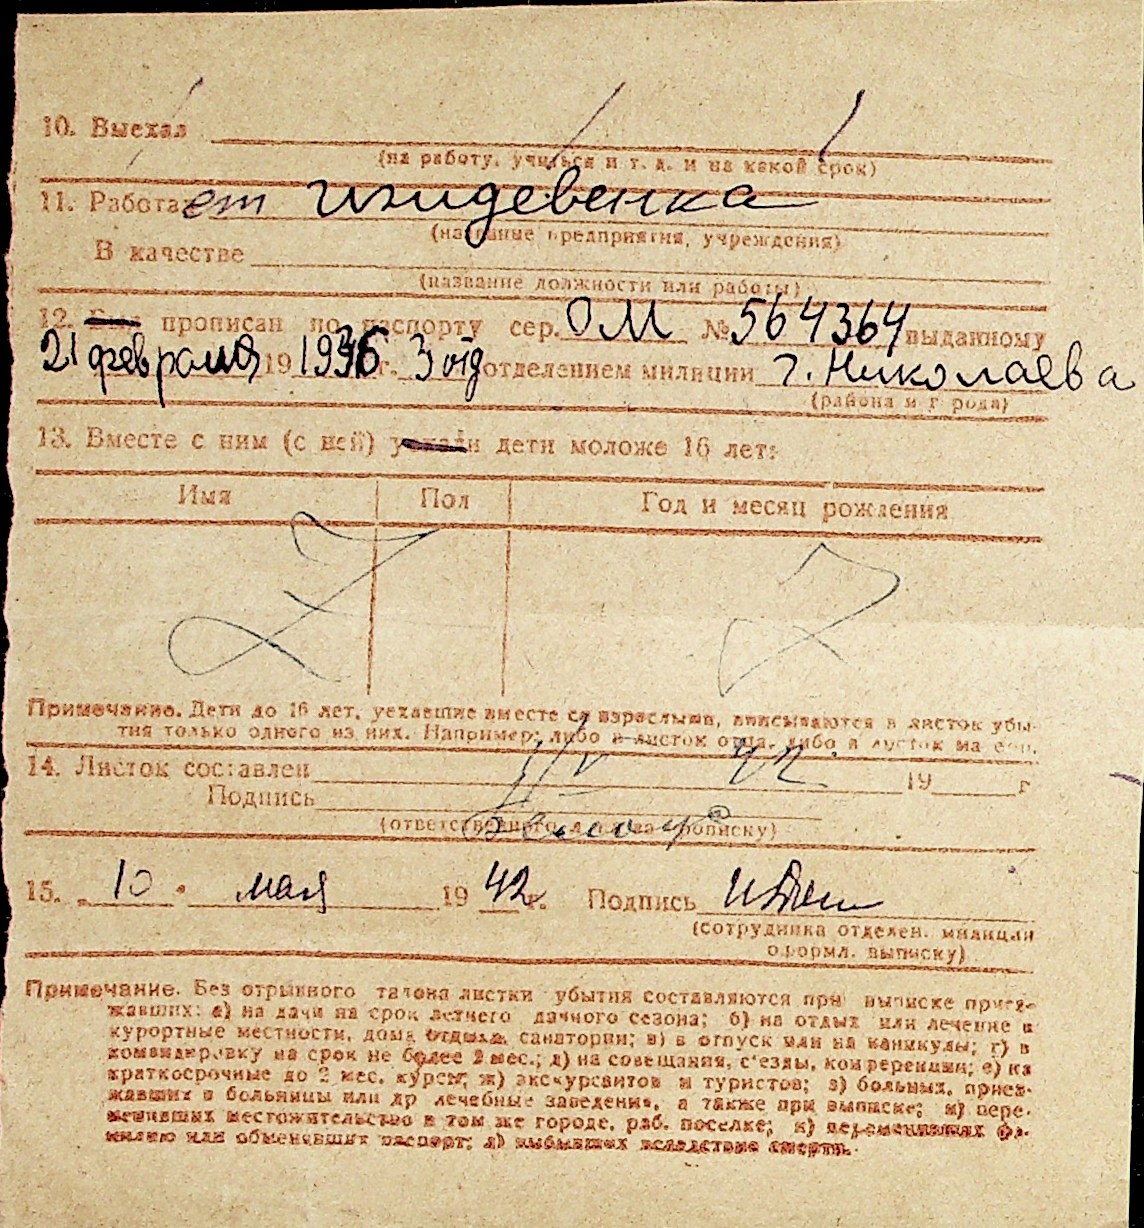 10. Выехал
(на работу, учиться и т. д. и на какой срок)
11. Работает иждевенка
(название предприятия, учреждения)
В качестве
(название должности или работы)
12. Был прописан по паспорту сер. ОМ № 564364 выданному
21 февраля 19 1936 г. 3 отд отделением милиции г. Николаева
(района и города)
13. Вместе с ним (с ней) уехали дети моложе 16 лет:
Имя Пол Год и месяц рождения
Z Z
Примечание. Дети до 16 лет, уехавшие вместе со взрослыми, вписываются в листок убы-
тия только одного из них. Например: либо в листок отца, либо в листок матери.
14. Листок составлен 42 19 г
Подпись
(ответственного за прописку)
15. „10" мая 1942 г. Подпись
(сотрудника отделен. милиции
оформл. выписку)
Примечание. Без отрывного талона листки убытия составляются при выписке приез-
жавших: а) на дачи на срок летнего дачного сезона; б) на отдых или лечение в
курортные местности, дома отдыха, санатории; в) в отпуск или на каникулы; г) в
командировку на срок не более 2 мес.; д) на совещания, с'езды, конференции; е) на
краткосрочные до 2 мес. курсы; ж) экскурсантов и туристов; з) больных, приез-
жавших в больницы или др лечебные заведения, а также при выписке; и) пере-
менивших местожительство в том же городе, раб. поселке; к) переменивших фа-
милию или обменявших паспорт; л) выбывших вследствие смерти.